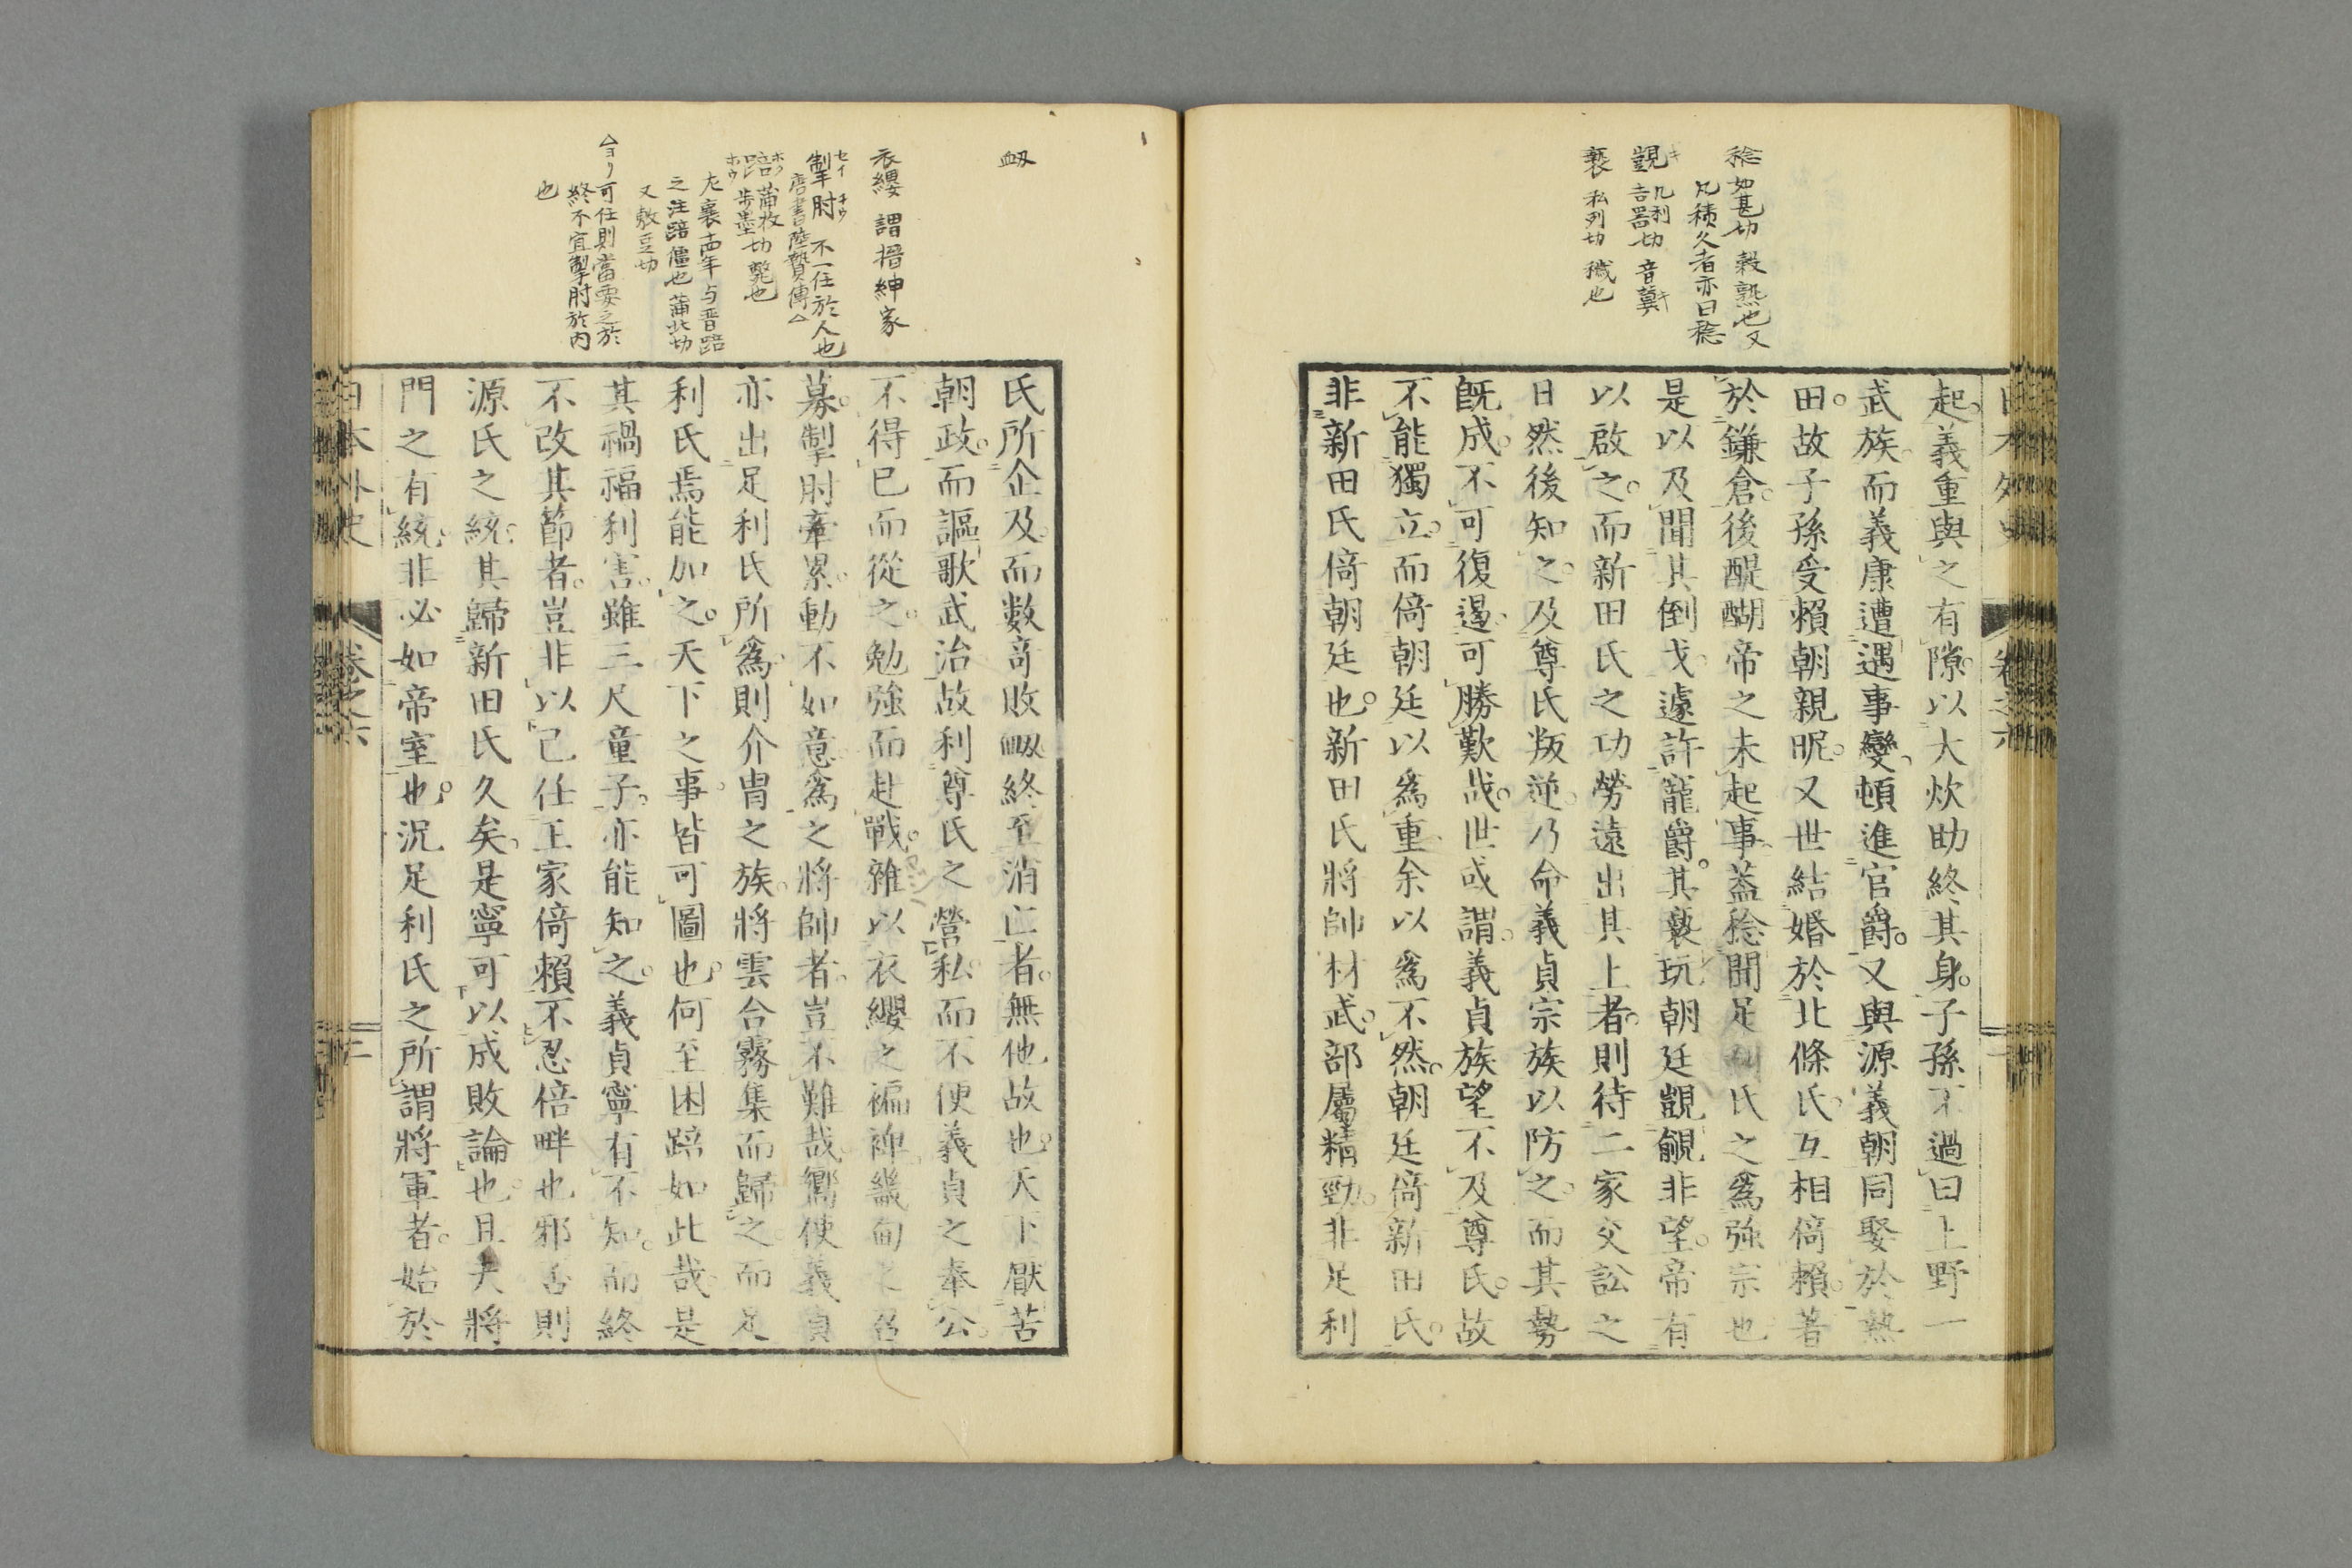 稔 如甚切 穀熟也又
凡積久者亦曰稔
覬 几利切 音冀
吉器切
褻 私列切 穢也
日本外史 卷之六
起義重與之有隙以大炊助終其身子孫不過曰上野一
武族而義康遭遇事變頓進官爵又與源義朝同娶於熱
田故子孫受賴朝親昵又世結婚於北條氏互相倚賴著
於鎌倉後醍醐帝之未起事蓋稔聞足利氏之爲強宗也
是以及聞其倒戈遽許寵爵其褻玩朝廷覬覦非望帝有
以啟之而新田氏之功勞遠出其上者則待二家交訟之
日然後知之及尊氏叛逆乃命義貞宗族以防之而其勢
既成不可復遏可勝歎哉世或謂義貞族望不及尊氏故
不能獨立而倚朝廷以爲重余以爲不然朝廷倚新田氏
非新田氏倚朝廷也新田氏將帥材武部屬精勁非足利
衂
衣纓 謂搢紳家
掣肘 不一任於人也
セイ チウ
唐書陸贄傳△
踣 蒲枚切 斃也
ホク
步墨
ホウ
左襄十四年与晋踣
之 注踣僵也 蒲北切
又敷豆切
△ヨリ可任則當要之於
終不宜掣肘於内
也
氏所企及而數奇敗衂終至消亡者無他故也天下厭苦
朝政而謳歌武治故利尊氏之營私而不便義貞之奉公
不得已而從之勉強而赴戰雜以衣纓之褊裨畿甸之召
募掣肘牽累動不如意爲之將帥者豈不難哉嚮使義貞
亦出足利氏所爲則介冑之族將雲合霧集而歸之而足
利氏焉能加之天下之事皆可圖也何至困踣如此哉是
其禍福利害雖三尺童子亦能知之義貞寧有不知而終
不改其節者豈非以己任王家倚賴不忍倍畔也邪否則
源氏之統其歸新田氏久矣是寧可以成敗論也且夫將
門之有統非必如帝室也況足利氏之所謂將軍者始於
日本外史 卷之六 二